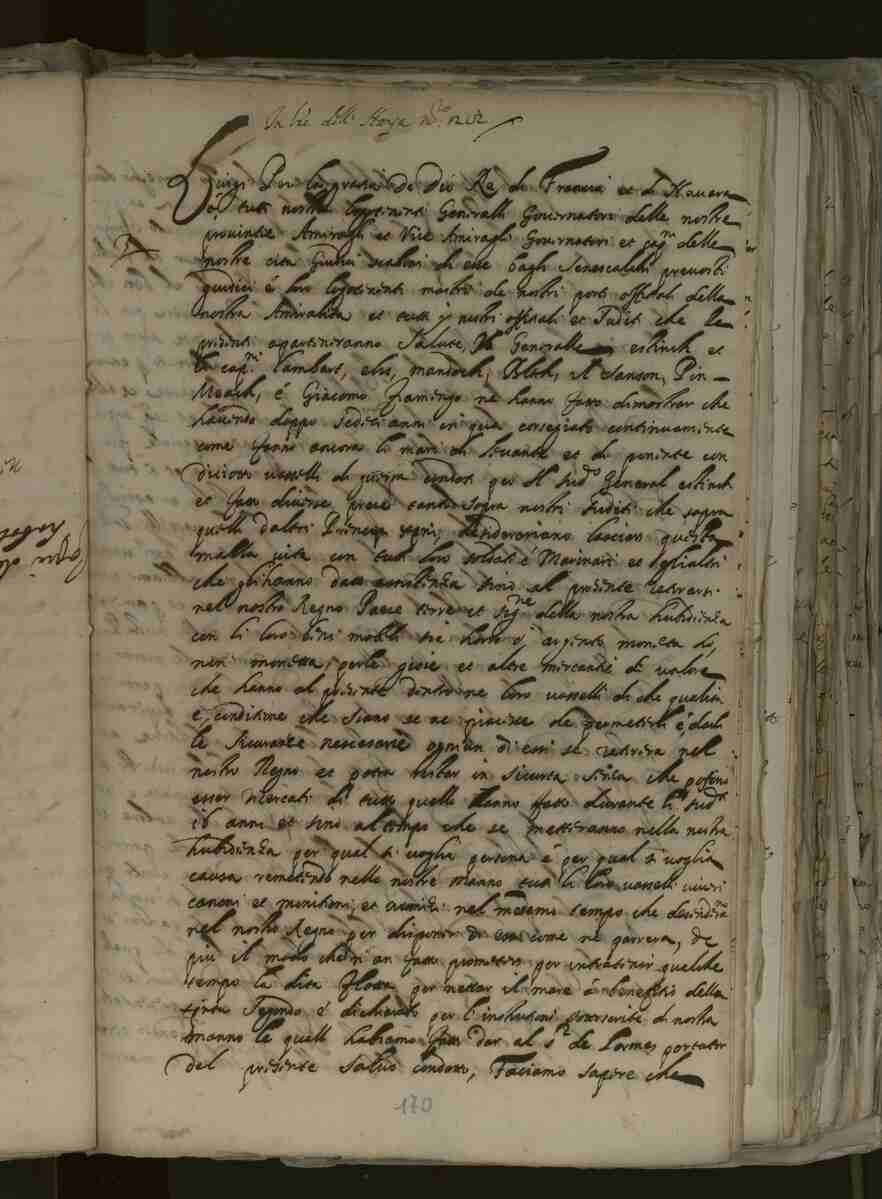 In lrē dell' Haya
Luigi Per la gratia de Dio Re di Francia et di Nauara
a tutti nostri logotenenti Generalli Gouernatori delle nostre
prouintie Amiragli et Vice Amiragli Gouernatori et cap.ni delle
nostre cita Giudici scabini di esse bagli Senescalchi preuosti
giudici é loro logotenenti mastri de nostri porti offitiali della
nostra Amiralita et tutti nostri offitiali et suditi che le
presenti apartineranno Salute, Il Generalle et
li cap.ni Lambert, elis, mandoch, Il Sanson, Pin
é Giacomo fiamingo ne hanno fatto dimostrar che
hauendo doppo sedeci anni in qua corsegiato continuamente
come fanno ancora li mari di leuante et di ponente con
diciotto vasselli di guerra condoti per Il sud.o General
et fatto diuerse prese tanto sopra nostri suditi che sopra
quelli d'altri Principi desiderariano lasciar questa
malla vita con tutti loro soldati é Marinari et gli altri
che gli hanno dato asistenza sino al presente retirarsi
nel nostro Regno Paese terre et sig.rie della nostra hubidienza
con li loro beni mobili sia horo ó argento moneta ó
non moneta, perle gioie et altre mercantie di valore
che hanno al presente dentro ne loro vasselli di che qualita
é conditione che siano se ne piacesse de permeterli é darli
le sicuranze nescesarie ogniun di essi se retirera nel
nostro Regno et potra restar in sicurta senza che possino
esser ricercati di tutto quello hanno fatto durante li sud.ti
16 anni et sino al tempo che se metteranno nella nostra
hubidienza per qual si voglia persona é per qual si voglia
causa remetendo nelle nostre manno tutti li loro vasselli viueri
canoni et monitioni, et nel medemo tempo che
nel nostro Regno per disponer di essi come ne parera, de
piu il modo che n'an fatto prometer per intratenir qualche
tempo la dita Flotta per nettar il mare á benefitio della
é dichiarato per l'instrutioni sottoscrite di nostra
manno le quali habiamo fatto dar al s.r de Lormes portator
del presente saluo condotto, Faciamo sapere che
170